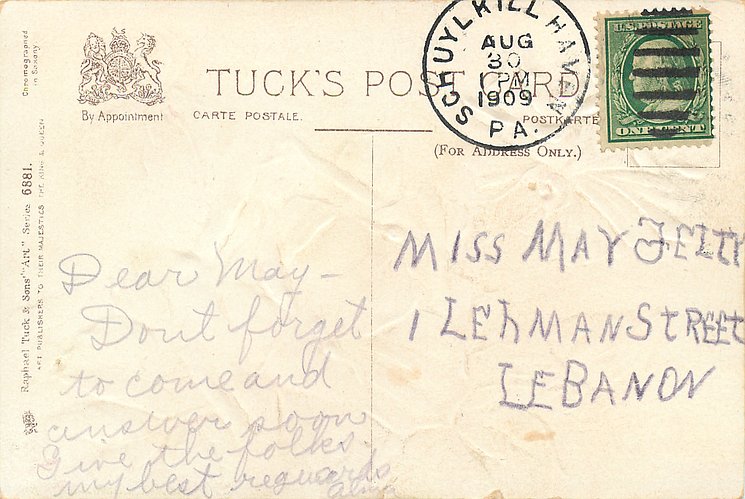 Chromographed
in Saxony
By Appointment
TUCK'S POST CARD
CARTE POSTALE.
POSTKARTE
(FOR ADDRESS ONLY.)
SCHUYLKILL HAVEN
AUG
30
PM
1909
PA.
U.S. POSTAGE
ONE CENT
Raphael Tuck & Sons' "Art" Series 6881.
ART PUBLISHERS TO THEIR MAJESTIES THE KING & QUEEN
Dear May –
Dont forget
to come and
answer soon
Give the folks
my best reguards
MISS MAY
1 LEhMAN StREET
LEBANON